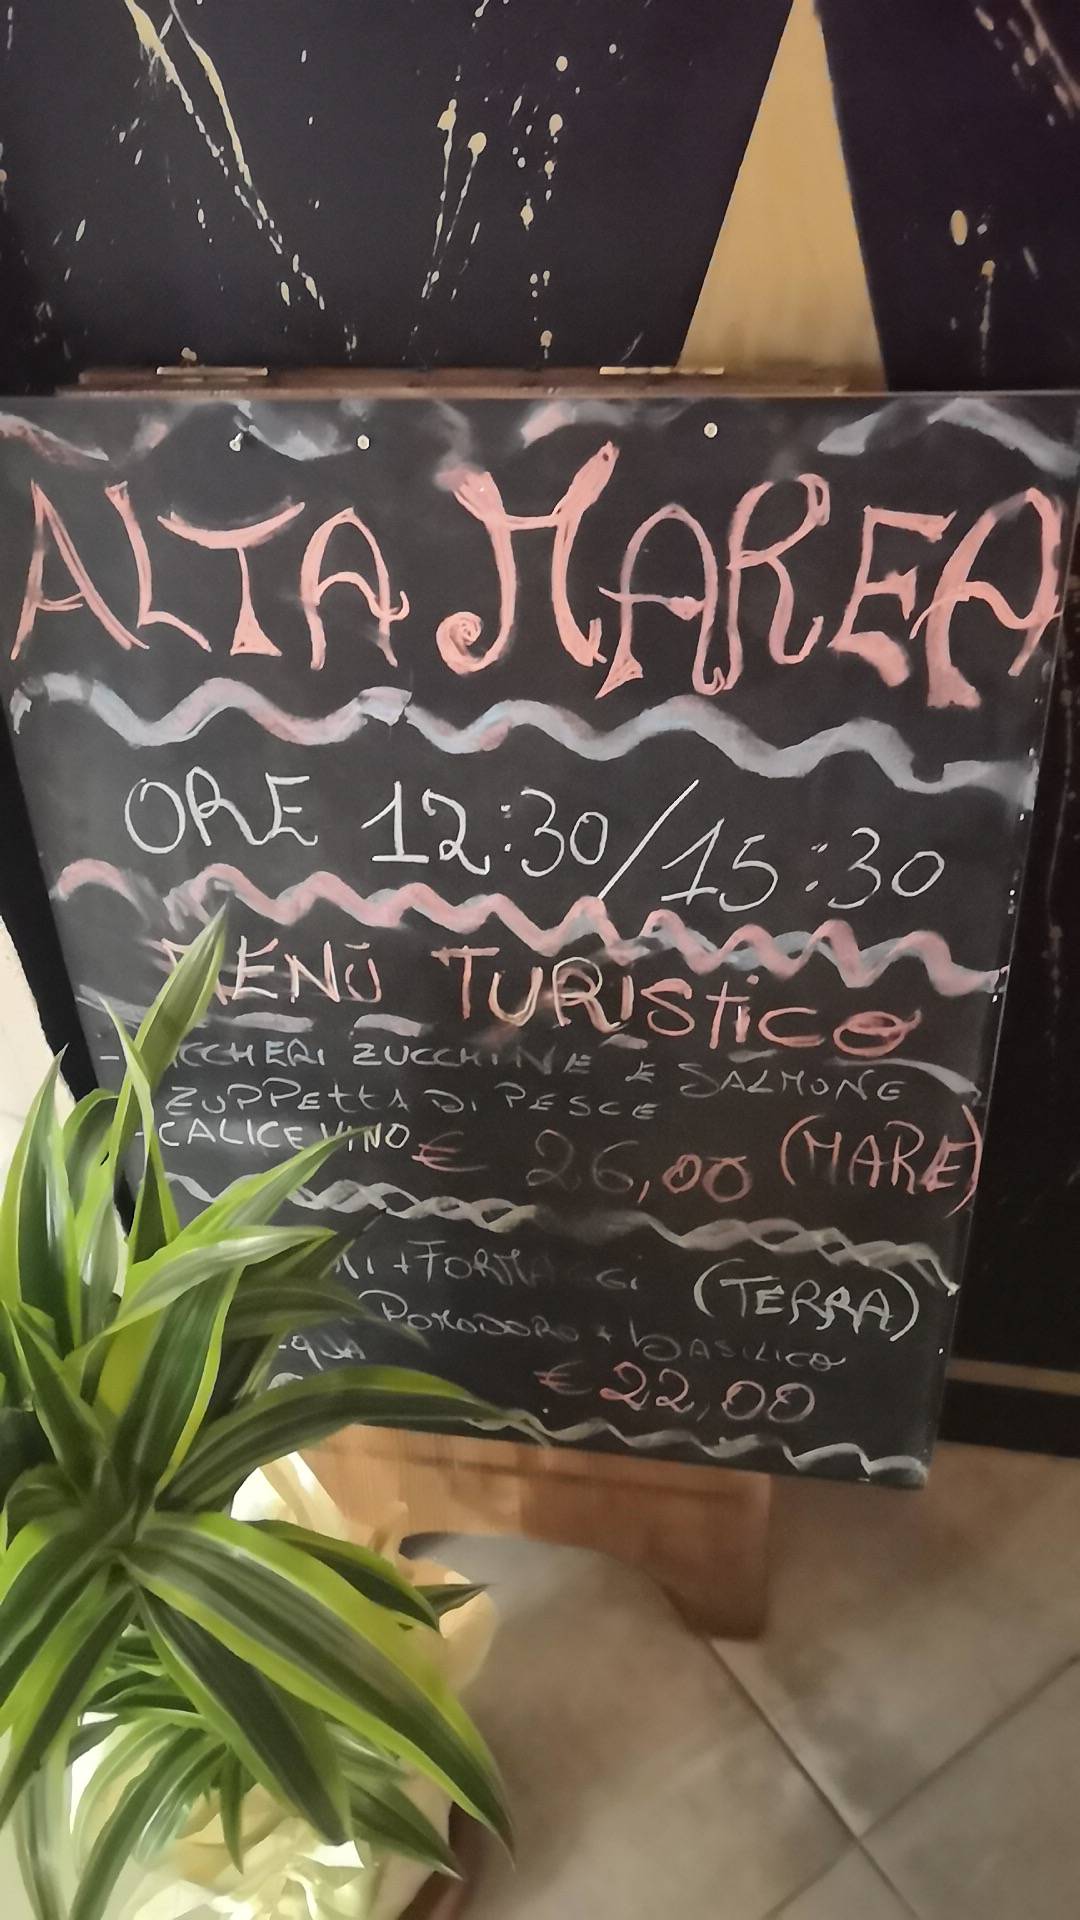 ALTA MAREA
ORE 12:30/15:30
MENÙ TURISTICO
ZUCCHINE E SALMONE
ZUPPETTA DI PESCE
- CALICE VINO € 26,00 (MARE)
(TERRA)
POMODORO + BASILICO
€ 22,00